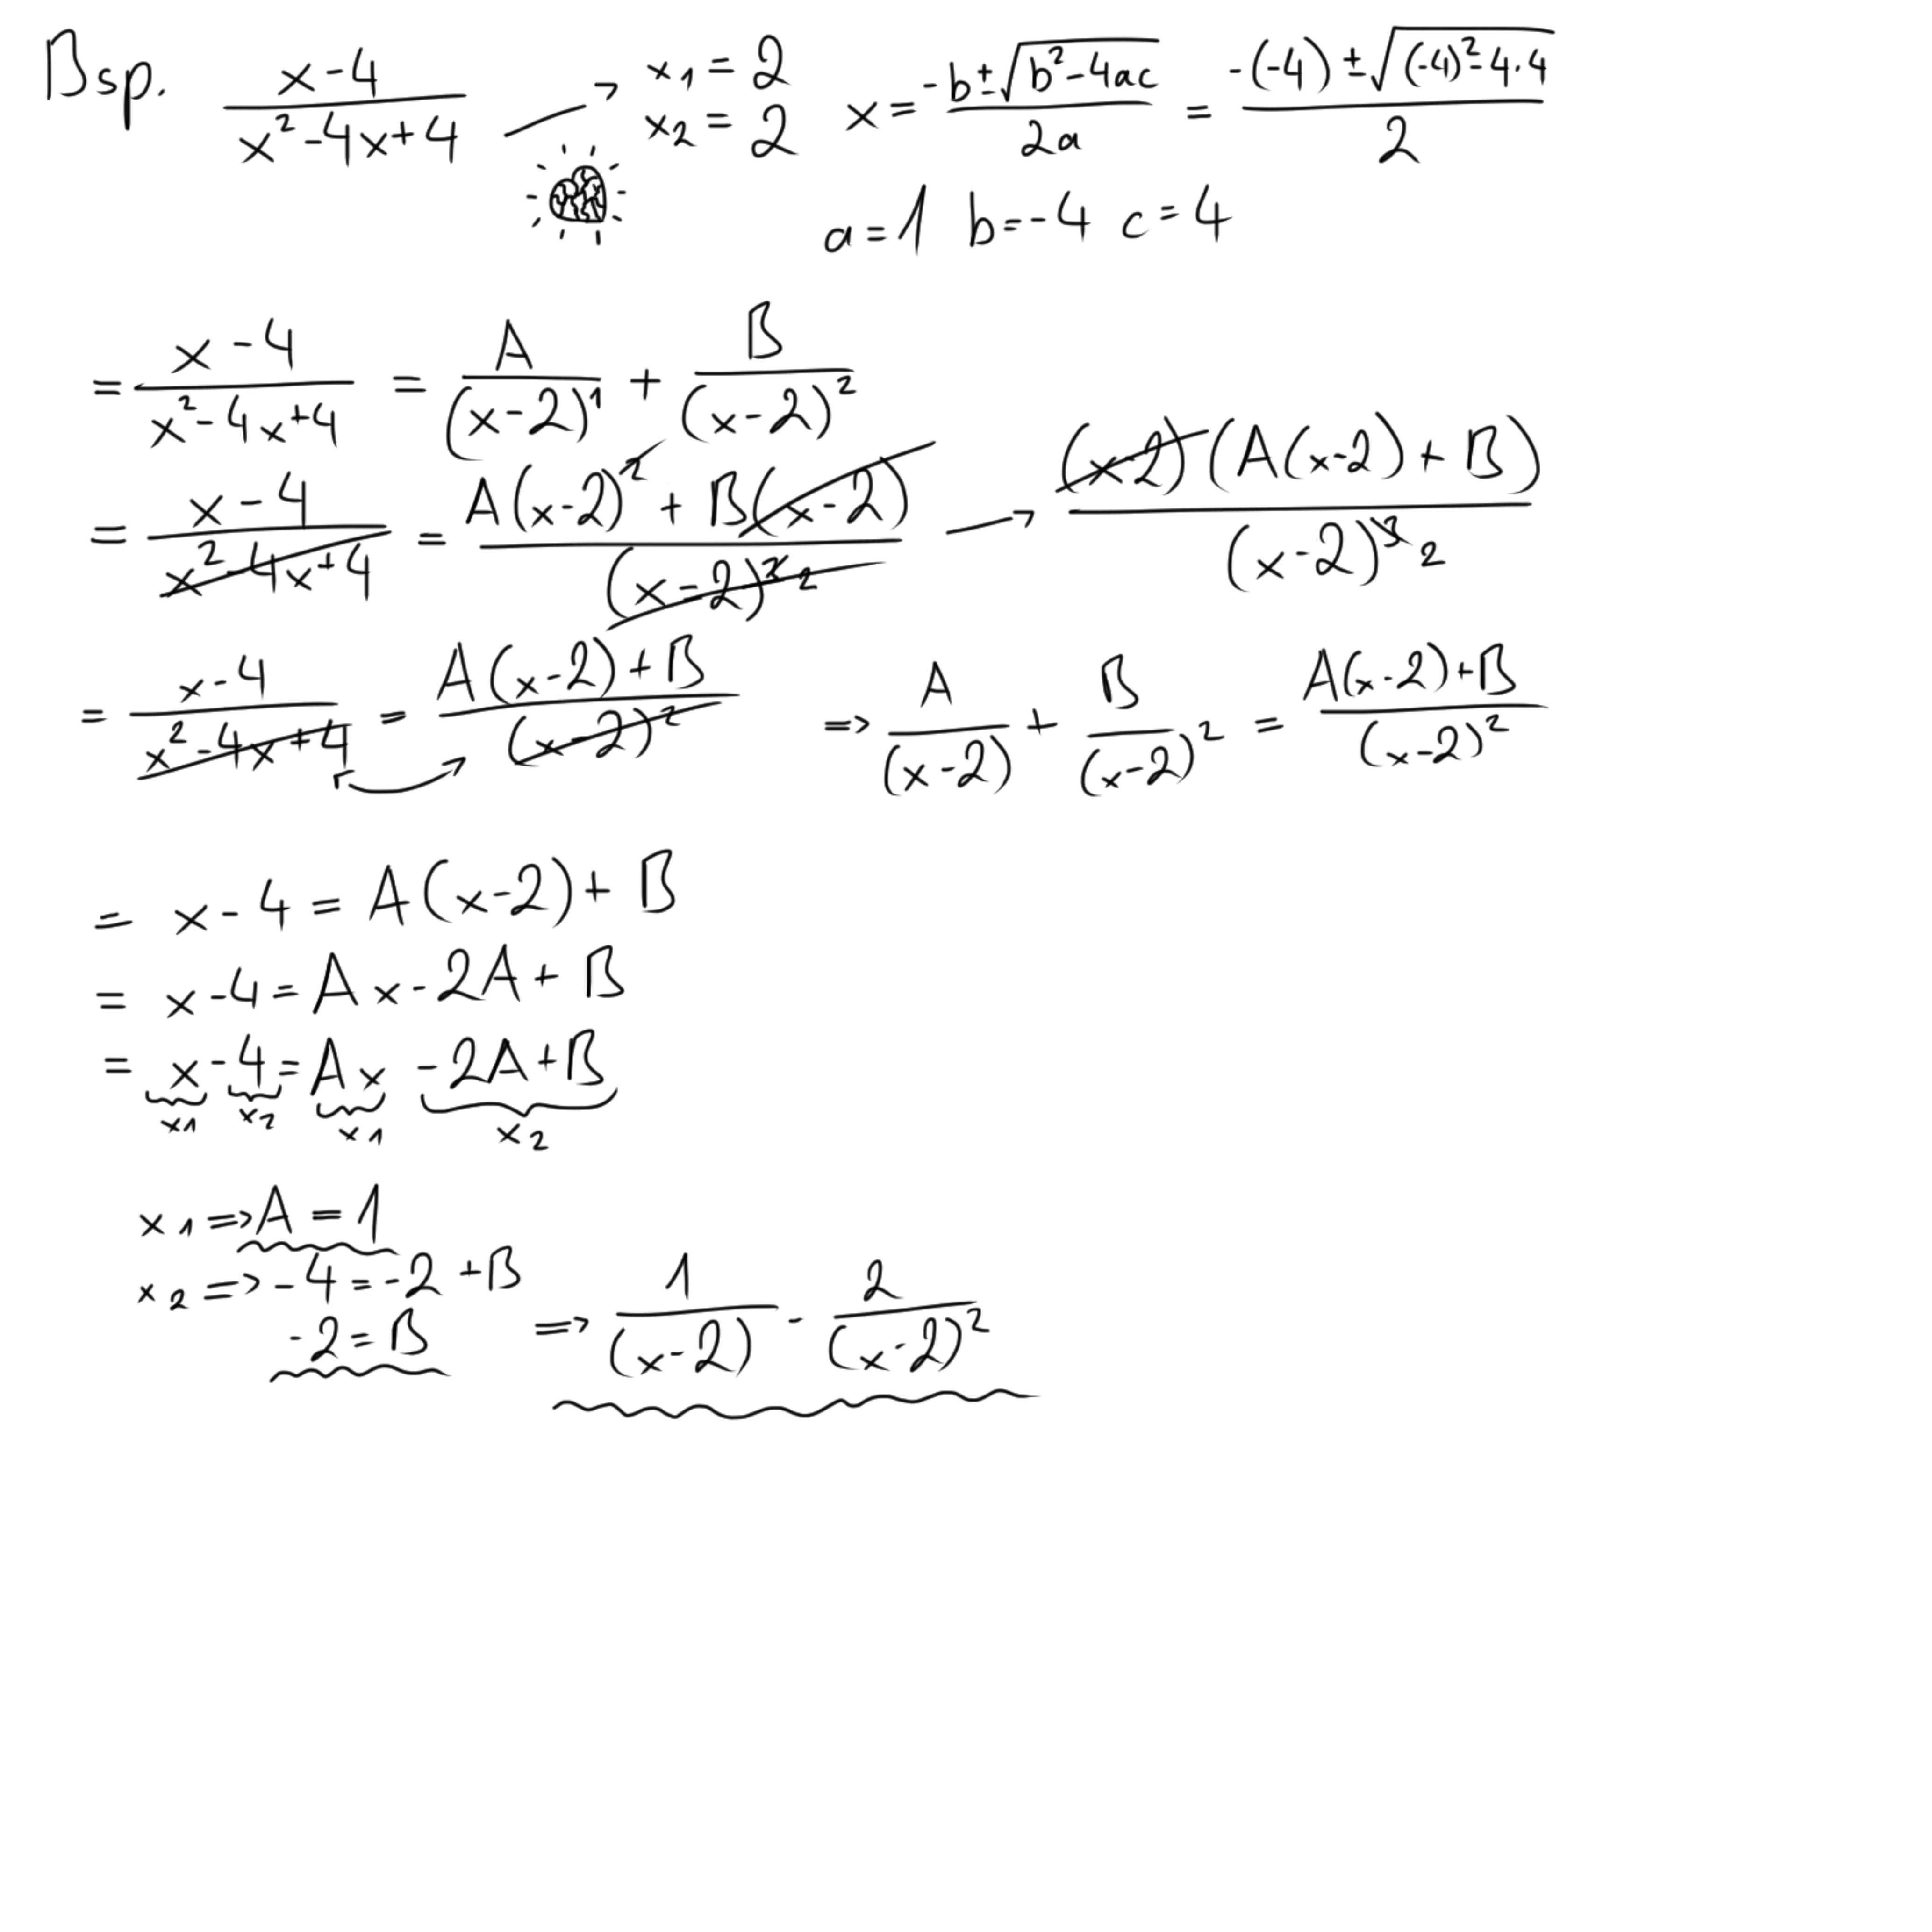 Bsp. (x-4)/(x²-4x+4) → x₁=2 x₂=2 x = (-b±√(b²-4ac))/(2a) = (-(-4)±√((-4)²-4·4))/2
a=1 b=-4 c=4
= (x-4)/(x²-4x+4) = A/(x-2)¹ + B/(x-2)²
= (x-4)/(x²-4x+4) = (A(x-2)²+B(x-2))/(x-2)³ ² → ((x-2)(A(x-2)+B))/(x-2)³ ²
= (x-4)/(x²-4x+4) = (A(x-2)+B)/(x-2)² => A/(x-2) + B/(x-2)² = (A(x-2)+B)/(x-2)²
= x-4 = A(x-2)+B
= x-4 = Ax-2A+B
= x-4 = Ax -2A+B
x₁ x₂ x₁ x₂
x₁ => A = 1
x₂ => -4 = -2+B
-2 = B => 1/(x-2) - 2/(x-2)²